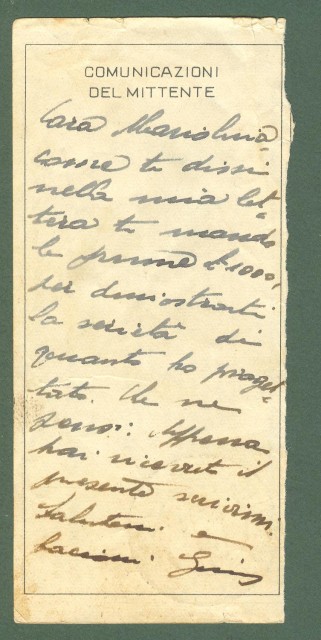 COMUNICAZIONI
DEL MITTENTE
Cara Mariolina
come ti dissi
nella mia let=
tera ti mando
le prime £ 1000,
per dimostrarti
la serietà di
quanto ho proget=
tato. Ce ne
sono: Appena
hai ricevuto il
presente scrivimi.
Salutoni e
bacioni.